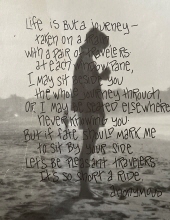 Life is but a Journey—
taken on a
with a pair of travelers
at each window pane,
I may sit beside you
the whole journey through
Or I may be seated elsewhere
never knowing you.
But if fate should mark me
to sit by your side
Let's be pleasant travelers
It's so short a ride.
anonymous